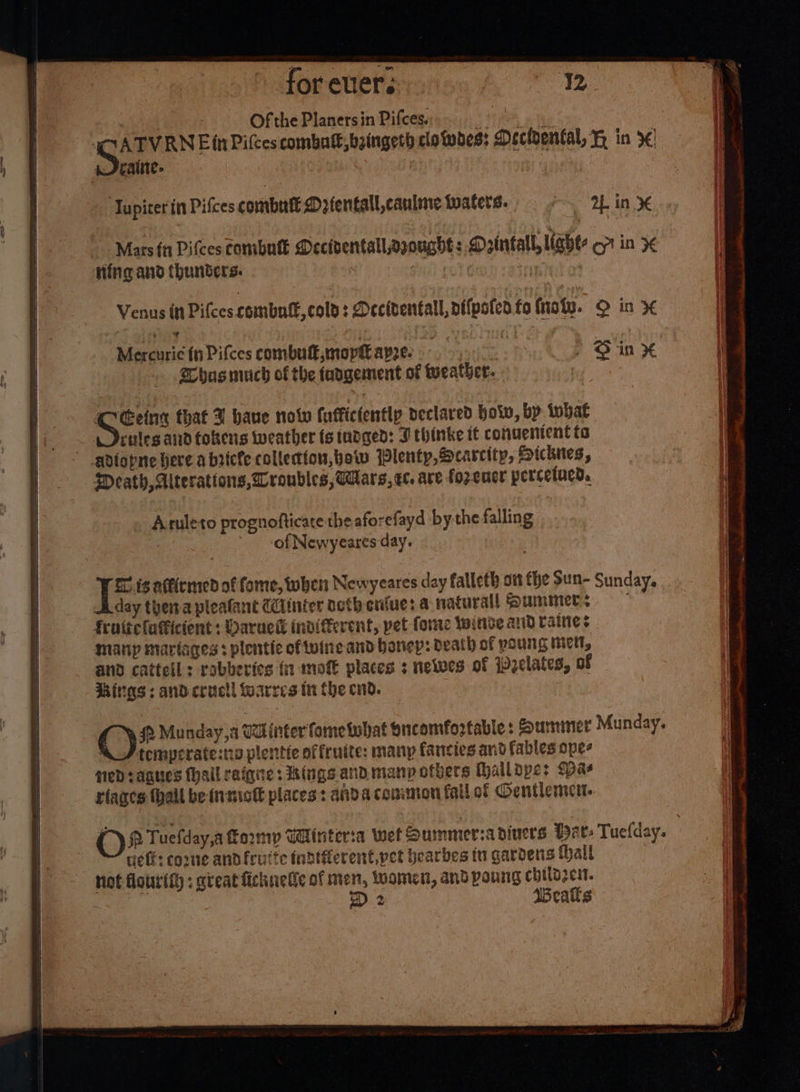 for euer. 12
Of the Planers in Pisces.
SATVRNE in Pisces combust, bringeth clowdes: Occidental, ♄ in ♓
raine.
Iupiter in Pisces combust Orientall, caulme waters. ♃ in ♓
Mars in Pisces combust Occidentall, drought: Orintall, light- ♂ in ♓
ning and thunders.
Venus in Pisces combust, cold: Occidentall, disposed to snow. ♀ in ♓
Mercurie in Pisces combust, moyst ayre. ☿ in ♓
Thus much of the iudgement of weather.
SEeing that I haue now sufficiently declared how, by what
rules and tokens weather is iudged: I thinke it conuenient to
adioyne here a bricfe collection, how Plenty, Scarcity, Sicknes,
Death, Alterations, Troubles, Wars, &c. are foreuer perceiued.
A rule to prognosticate the aforesayd by the falling
of Newyeares day.
IT is affirmed of some, when Newyeares day falleth on the Sun- Sunday.
day then a pleasant Winter doth ensue: a naturall Summer:
fruite sufficient: Haruest indifferent, yet some winde and raine:
many mariages: plentie of wine and honey: death of young men,
and cattell: robberies in most places: newes of Prelates, of
Kings: and cruell warres in the end.
ON Munday, a Winter somewhat vncomfortable: Summer Munday.
temperate: no plentie of fruite: many fancies and fables ope-
ned: agues shall raigne: Kings and many others shall dye: Ma-
riages shall be in most places: and a common fall of Gentlemen.
ON Tuesday, a stormy Winter: a wet Summer: a diuers Har- Tuesday.
uest: corne and fruite indifferent, yet hearbes in gardens shall
not flourish: great sicknesse of men, women, and young children.
D 2 Beasts